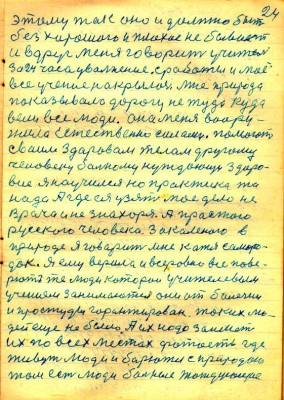 24
этому так оно и должно быть
без хорошого и плохое не бывает
и вдруг меня говорит учитель
за 24 часа увалнение с работы и моё
все учение накрылося мне природа
показывало дорогу не туда куда
вели все люди. она меня воору-
жила Естественно силами. помогать
своим здаровам телам другому
человеку бальному нуждающу здоро-
вие я научился но практика та
надо А где ея узять мое дело не
врача и не знахоря. А прастого
русского человека. Закаленого в
природе я говарит мне катя саморо-
док. Я ему верила и всеровно все пове-
рют я те люди которои учителевым
учением занимаются они от болезни
и простуды гарантирован. таких лю-
дей еще не было. А их надо занимат
их по всех местах где
живут люди и барются с природаю
там ест люди бальные